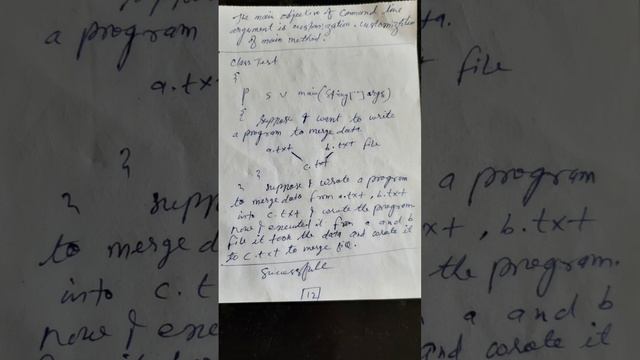 The main objective of Command line
argument is customization
of main method.
Class Test
{
p s v main(String[] args)
{ Suppose I want to write
a program to merge data
a.txt b.txt file
c.txt
}
} Suppose I wrote a program
to merge data from a.txt, b.txt
into c.txt I wrote the program
now I executed it from a and b
file it took the data and wrote it
to c.txt to merge file.
Successfull
12